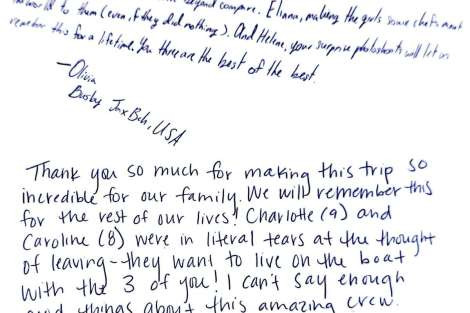 beyond compare. Eliana, making the girls some chef's meant
world to them (even if they did nothing). And Helene, your surprise photoshoots will let us
remember this for a lifetime. You three are the best of the best.
—Olivia
Busby Jax Bch, USA
Thank you so much for making this trip so
incredible for our family. We will remember this
for the rest of our lives! Charlotte (9) and
Caroline (8) were in literal tears at the thought
of leaving - they want to live on the boat
with the 3 of you! I can't say enough
good things about this amazing crew.